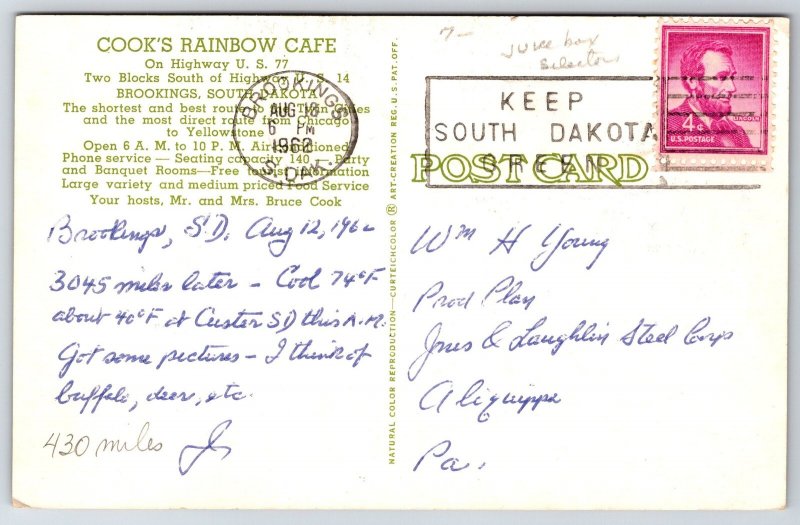 COOK'S RAINBOW CAFE
On Highway U. S. 77
Two Blocks South of Highway U. S. 14
BROOKINGS, SOUTH DAKOTA
The shortest and best route to Twin Cities
and the most direct route from Chicago
to Yellowstone
Open 6 A. M. to 10 P. M. Air Conditioned
Phone service — Seating capacity 140 — Party
and Banquet Rooms—Free tourist information
Large variety and medium priced Food Service
Your hosts, Mr. and Mrs. Bruce Cook
BROOKINGS
AUG 13
6 PM
1962
S. DAK.
Brookings, S.D. Aug 12, 1962
3045 miles later — Cool 74°F
about 40°F at Custer SD this A.M.
Got some pictures — I think of
buffalo, deer, etc.
430 miles
NATURAL COLOR REPRODUCTION—CURTEICHCOLOR ® ART-CREATION REG. U. S. PAT. OFF.
7-
Juke box
selectors
KEEP
SOUTH DAKOTA
GREEN
LINCOLN
4¢
U.S. POSTAGE
POST CARD
Wm H Young
Prod Plan
Jones & Laughlin Steel Corp
Aliquippa
Pa.